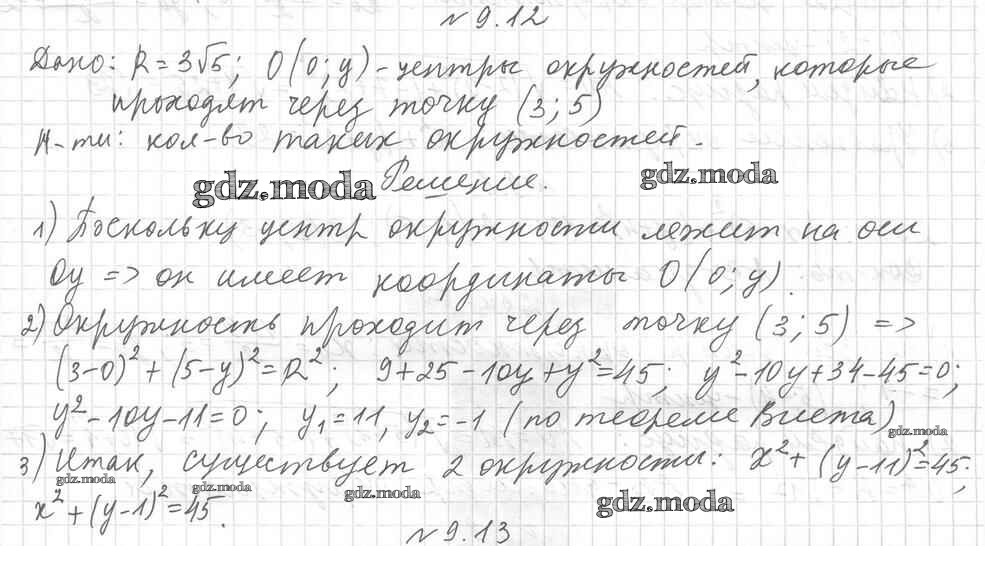 № 9.12
Дано: R = 3√5; O(0; y) - центры окружностей, которые
проходят через точку (3; 5)
Н-ти: кол-во таких окружностей.
gdz.moda Решение. gdz.moda
1) Поскольку центр окружности лежит на оси
Oy => он имеет координаты O(0; y).
2) Окружность проходит через точку (3; 5) =>
(3-0)² + (5-y)² = R²; 9+25-10y+y²=45; y²-10y+34-45=0;
y²-10y-11=0; y₁=11, y₂=-1 (по теореме Виета)
gdz.moda
3) Итак, существует 2 окружности: x²+(y-11)²=45;
gdz.moda gdz.moda gdz.moda
x²+(y-1)²=45.
gdz.moda
№ 9.13